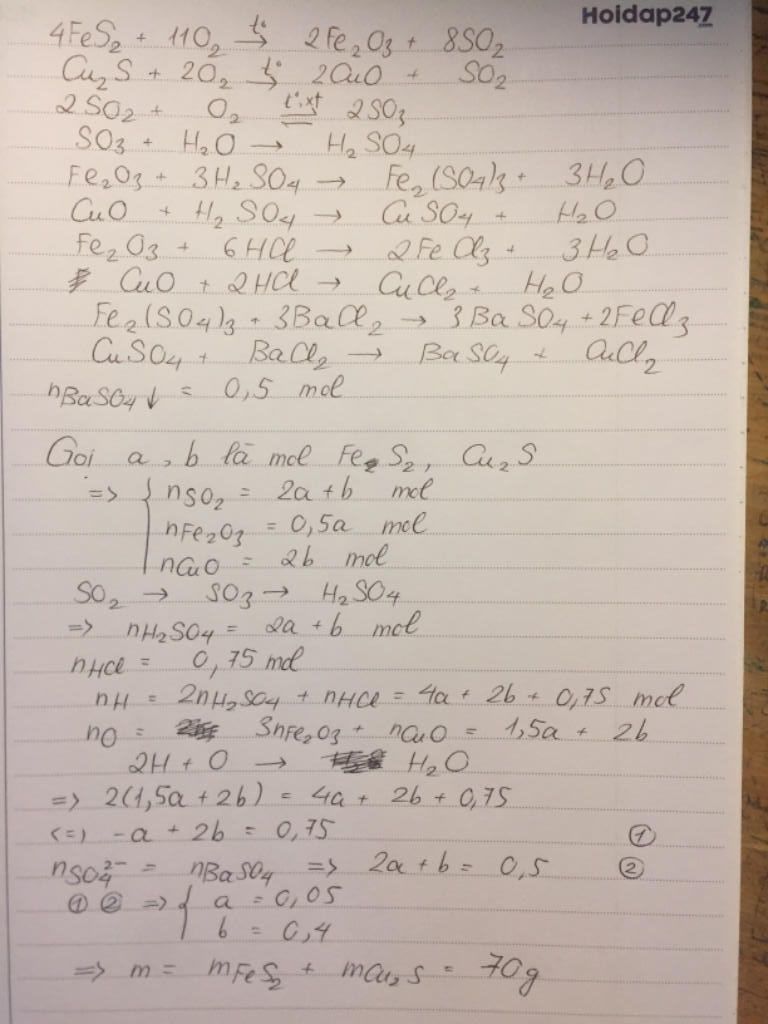 Hoidap247
4FeS₂ + 11O₂ t°→ 2Fe₂O₃ + 8SO₂
Cu₂S + 2O₂ t°→ 2CuO + SO₂
2SO₂ + O₂ t°,xt⇌ 2SO₃
SO₃ + H₂O → H₂SO₄
Fe₂O₃ + 3H₂SO₄ → Fe₂(SO₄)₃ + 3H₂O
CuO + H₂SO₄ → CuSO₄ + H₂O
Fe₂O₃ + 6HCl → 2FeCl₃ + 3H₂O
CuO + 2HCl → CuCl₂ + H₂O
Fe₂(SO₄)₃ + 3BaCl₂ → 3BaSO₄ + 2FeCl₃
CuSO₄ + BaCl₂ → BaSO₄ + CuCl₂
nBaSO₄↓ = 0,5 mol
Gọi a, b là mol FeS₂, Cu₂S
=> { nSO₂ = 2a + b mol
nFe₂O₃ = 0,5a mol
nCuO = 2b mol
SO₂ → SO₃ → H₂SO₄
=> nH₂SO₄ = 2a + b mol
nHCl = 0,75 mol
nH = 2nH₂SO₄ + nHCl = 4a + 2b + 0,75 mol
nO = 3nFe₂O₃ + nCuO = 1,5a + 2b
2H + O → H₂O
=> 2(1,5a + 2b) = 4a + 2b + 0,75
<=> -a + 2b = 0,75 ①
nSO₄²⁻ = nBaSO₄ => 2a + b = 0,5 ②
① ② => { a = 0,05
b = 0,4
=> m = mFeS₂ + mCu₂S = 70g